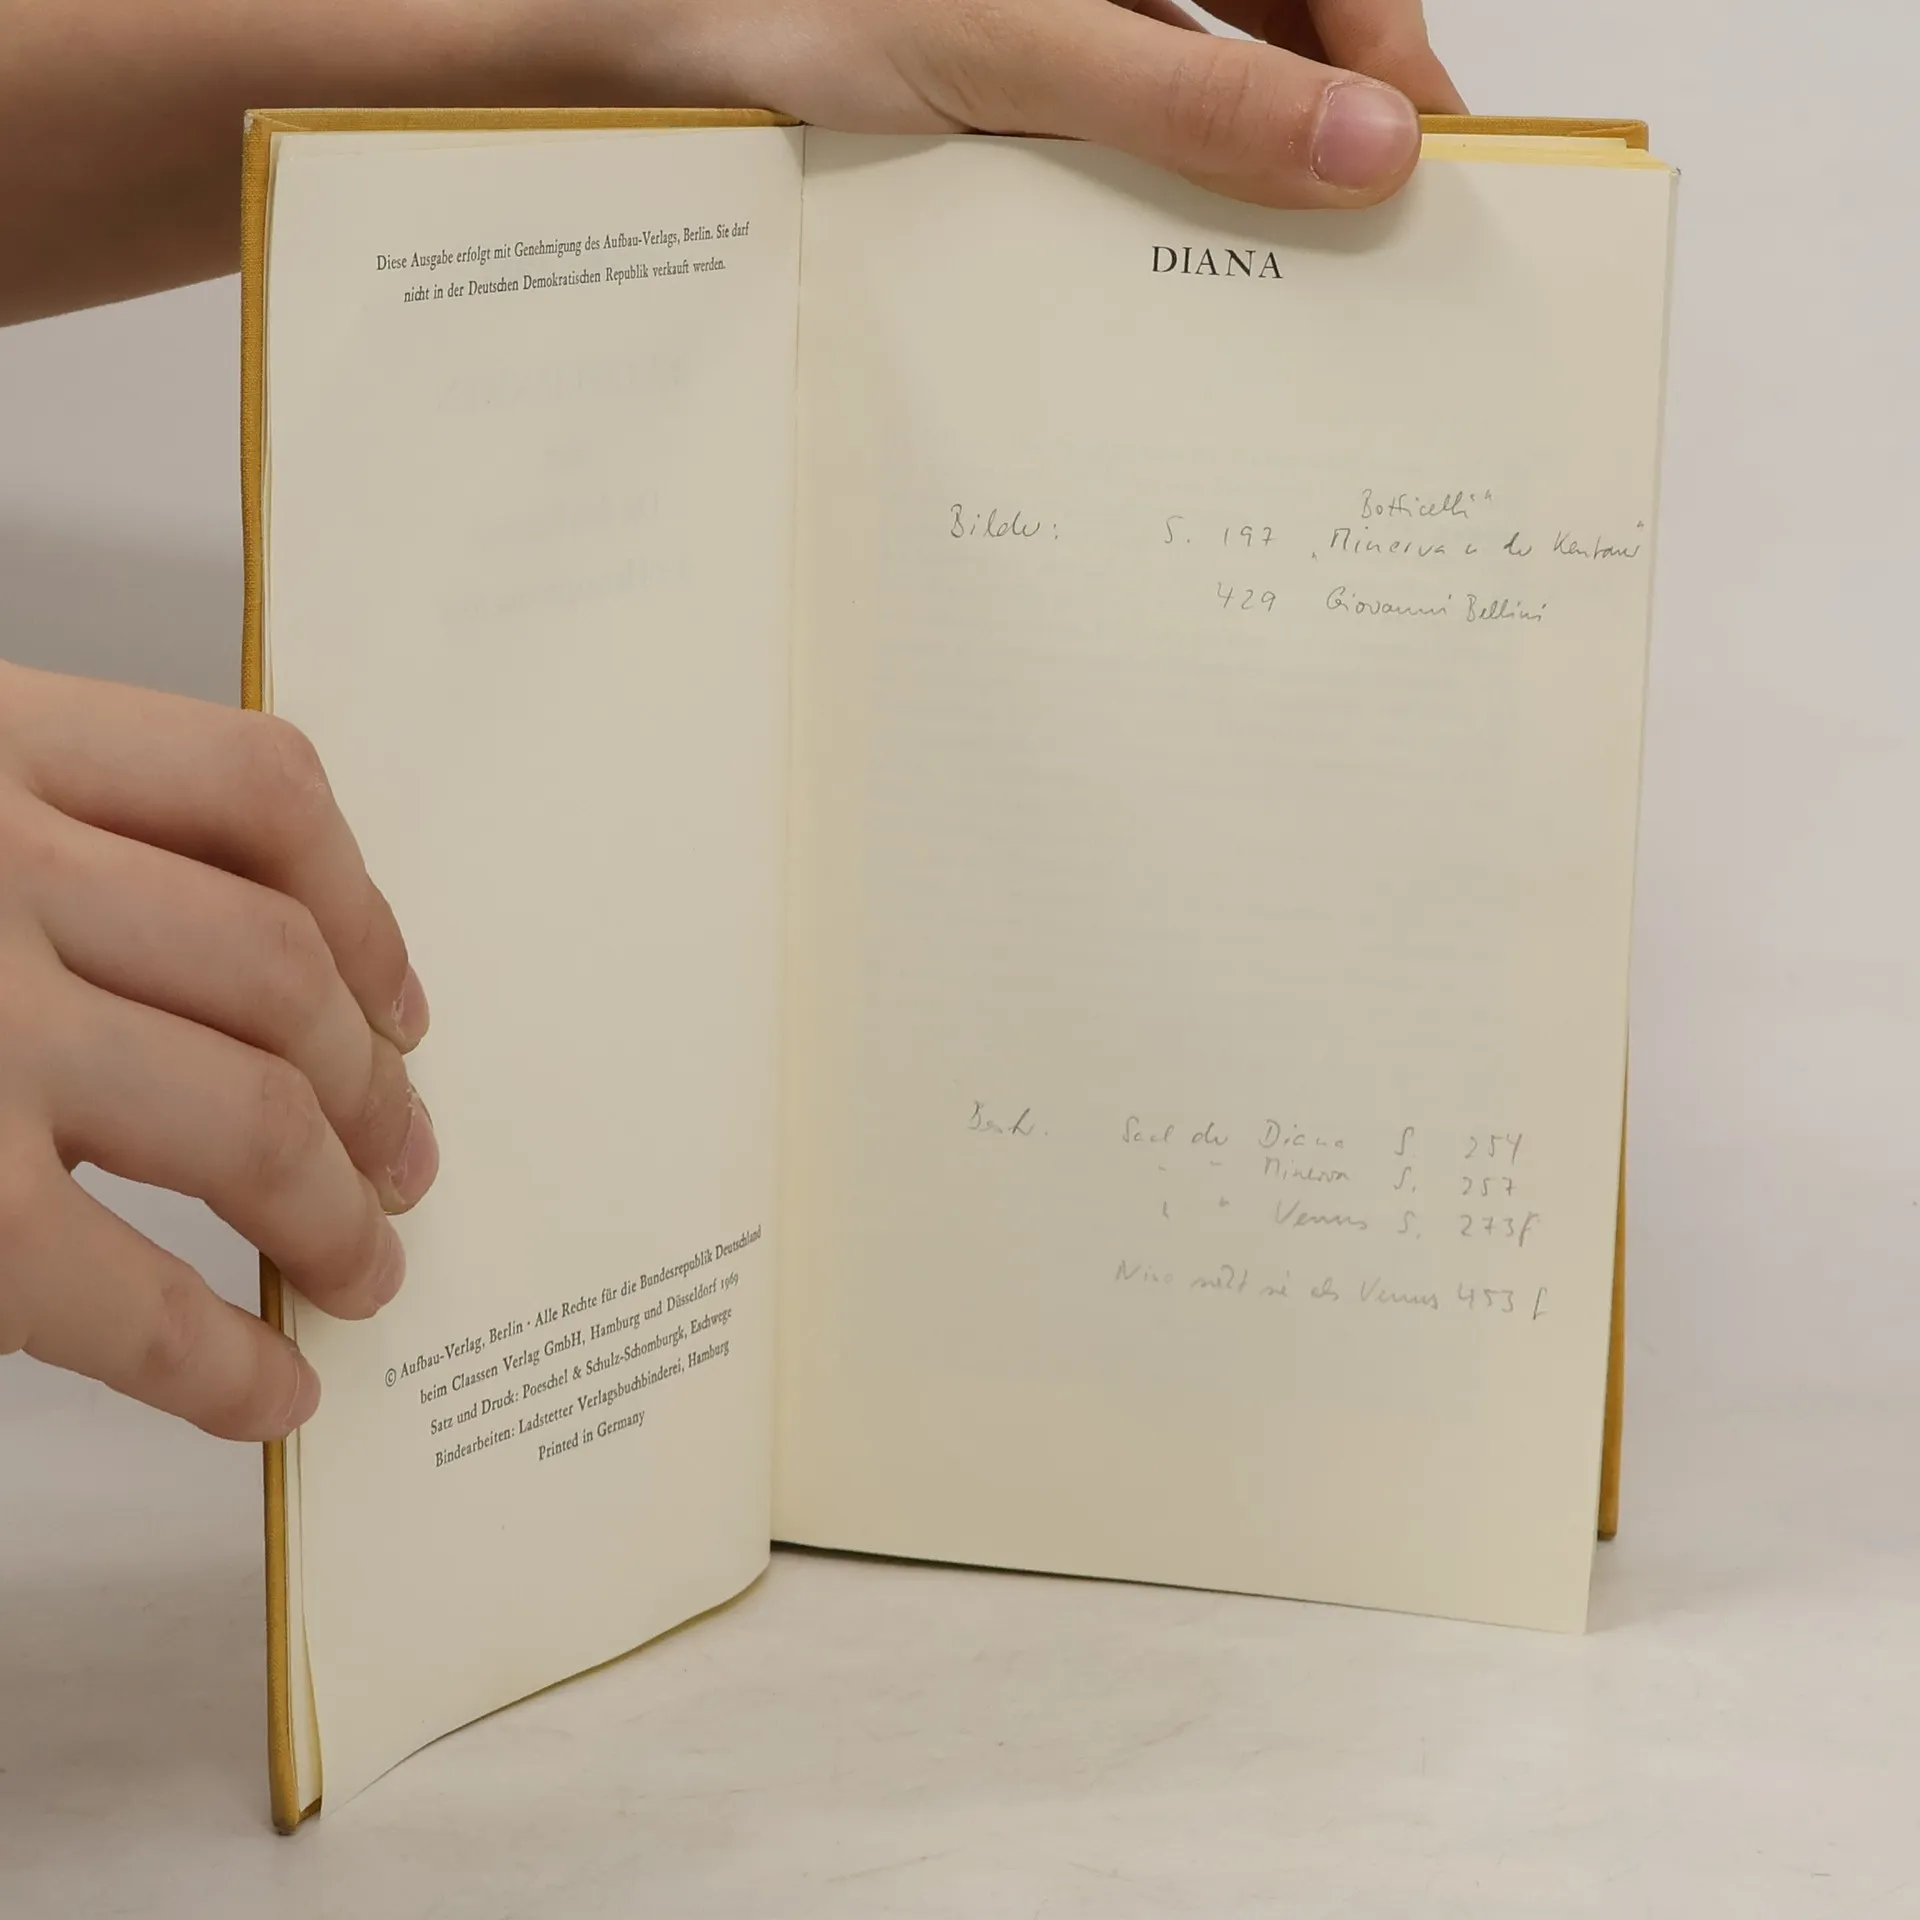 Diese Ausgabe erfolgt mit Genehmigung des Aufbau-Verlags, Berlin. Sie darf
nicht in der Deutschen Demokratischen Republik verkauft werden.
© Aufbau-Verlag, Berlin · Alle Rechte für die Bundesrepublik Deutschland
beim Claassen Verlag GmbH, Hamburg und Düsseldorf 1969
Satz und Druck: Poeschel & Schulz-Schomburgk, Eschwege
Bindearbeiten: Ladstetter Verlagsbuchbinderei, Hamburg
Printed in Germany
DIANA
Botticelli"
Bilder: S. 197 „Minerva u der Kentaur"
429 Giovanni Bellini
Saal der Diana S. 254
" " Minerva S. 257
" " Venus S. 273f
sie als Venus 453 f